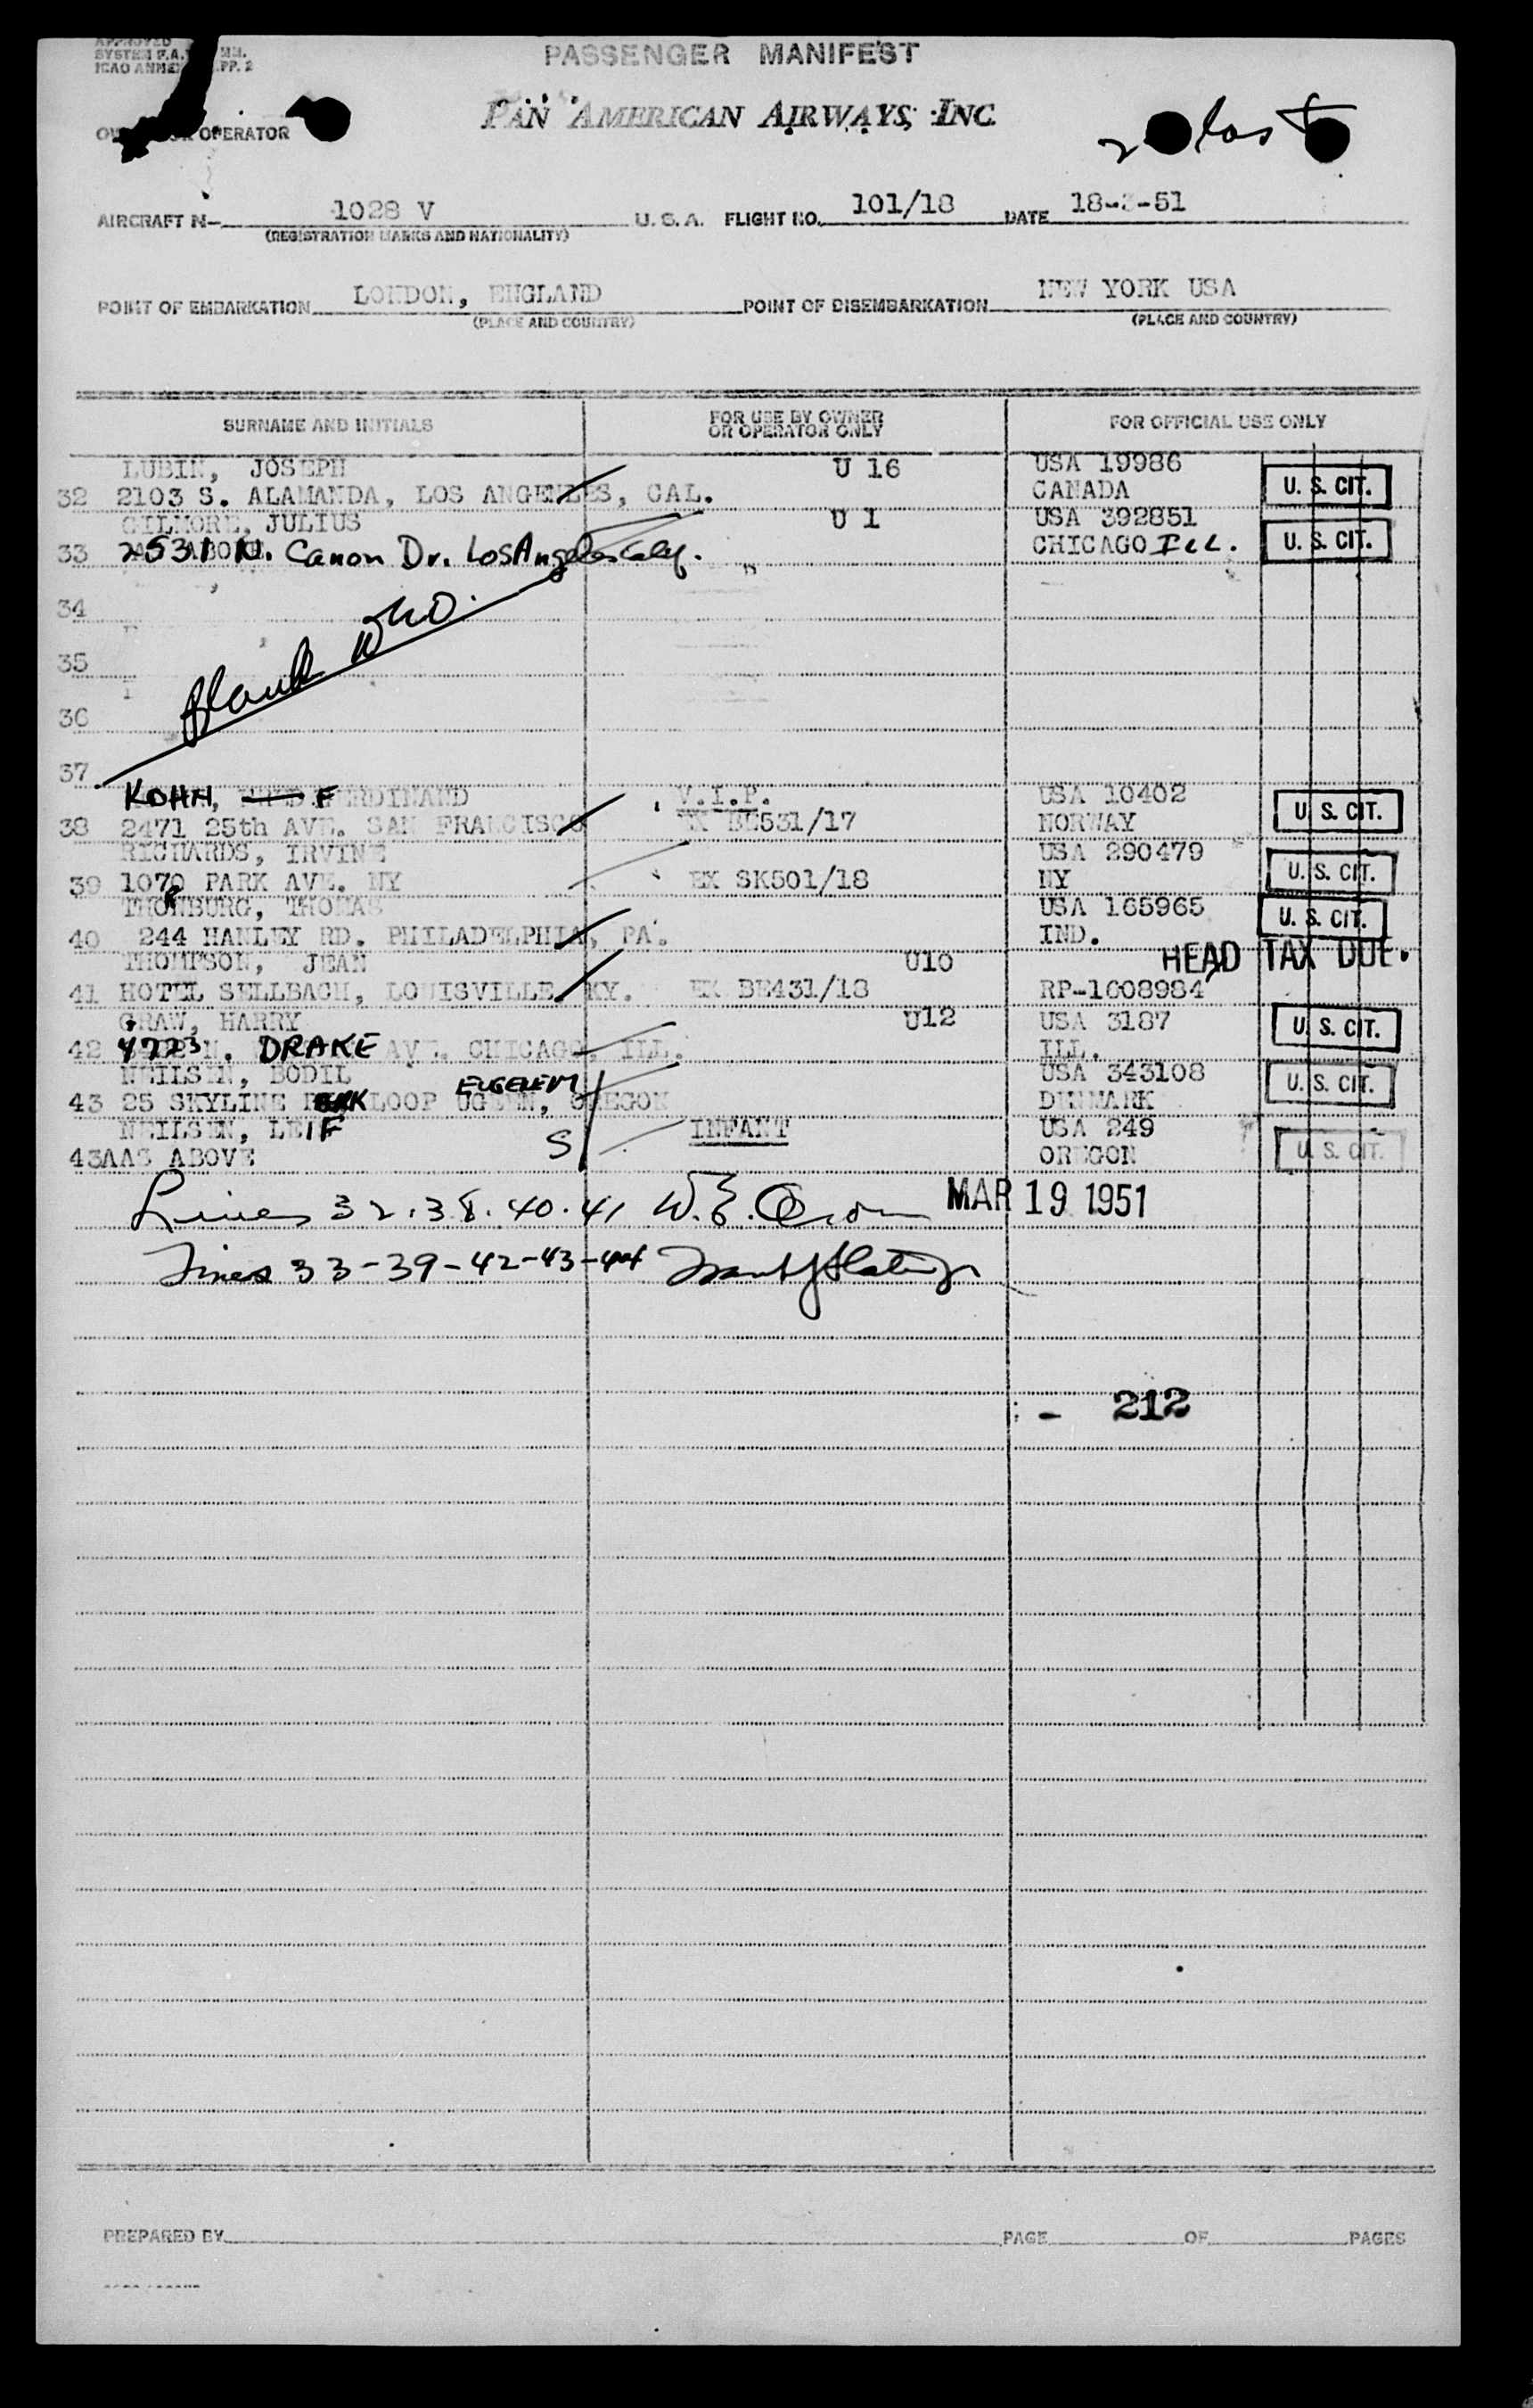 APPROVED
SYSTEM F.A. MM.
ICAO ANNEX PP. 2
PASSENGER MANIFEST
PAN AMERICAN AIRWAYS, INC.
OPERATOR
2 last
AIRCRAFT N- 1028 V U.S.A. FLIGHT NO. 101/18 DATE 18-3-51
(REGISTRATION MARKS AND NATIONALITY)
POINT OF EMBARKATION LONDON, ENGLAND POINT OF DISEMBARKATION NEW YORK USA
(PLACE AND COUNTRY) (PLACE AND COUNTRY)
SURNAME AND INITIALS FOR USE BY OWNER OR OPERATOR ONLY FOR OFFICIAL USE ONLY
LUBIN, JOSEPH U 16 USA 19986
32 2103 S. ALAMANDA, LOS ANGELES, CAL. CANADA U. S. CIT.
GILMORE, JULIUS U 1 USA 392851
33 2531 N. Canon Dr. Los Angeles Calif. CHICAGO Ill. U. S. CIT.
34
35
36
37
KOHN, F FERDINAND V.I.P. USA 10402
38 2471 25th AVE. SAN FRANCISCO EX BE531/17 NORWAY U. S. CIT.
RICHARDS, IRVINE USA 290479
39 1070 PARK AVE. NY EX SK501/18 NY U. S. CIT.
THORNBURG, THOMAS USA 165965
40 244 HANLEY RD. PHILADELPHIA, PA. IND. U. S. CIT.
THOMPSON, JEAN U10 HEAD TAX DUE.
41 HOTEL SELLBACH, LOUISVILLE, KY. EX BE431/18 RP-1608984
GRAW, HARRY U12 USA 3187
42 4723 N. DRAKE AVE. CHICAGO, ILL. ILL. U. S. CIT.
NEILSEN, BODIL USA 343108
43 25 SKYLINE PARK LOOP OREGON DENMARK U. S. CIT.
NEILSEN, LEIF S INFANT USA 249
43A AS ABOVE OREGON U. S. CIT.
Lines 32.38.40.41 W.E. MAR 19 1951
Lines 33-39-42-43-44
- 212
PREPARED BY PAGE OF PAGES